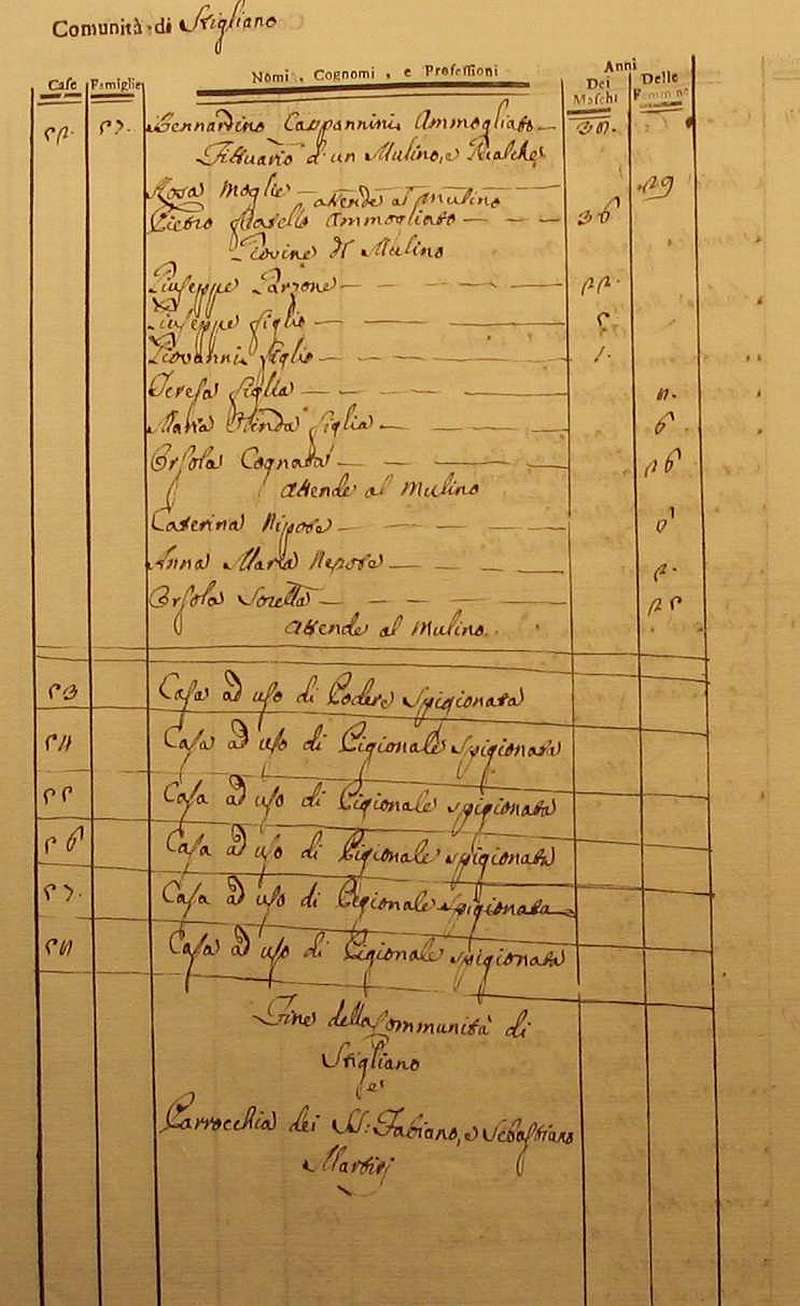 Comunità di Stigliano
Case Famiglie Nomi, Cognomi, e Professioni Anni Dei Maschi Delle Femmine
Bennardino Cappannini Ammogliato
Fittuario d'un Mulino, e
Rosa Moglie attende al Mulino 29
Pietro Ammogliato 36
Mulino
Giuseppe Garzone 22.
Giuseppe figlio 5
Giovanni figlio 1.
Teresa figlia
Maria figlia 6
Orsola Cognata 26
attende al Mulino
Caterina Nipote
Anna Maria Nepote 2.
Orsola Sorella 25
attende al Mulino.
53 Casa ad uso di Podere spigionata
54 Casa ad uso di Pigionale spigionata
55 Casa ad uso di Pigionale spigionata
56 Casa ad uso di Pigionale spigionata
57. Casa ad uso di Pigionale spigionata
58 Casa ad uso di Pigionale spigionata
Fine della Communità di
Stigliano
e
Parrocchia dei SS: Fabiano, e Sebastiano
Martiri